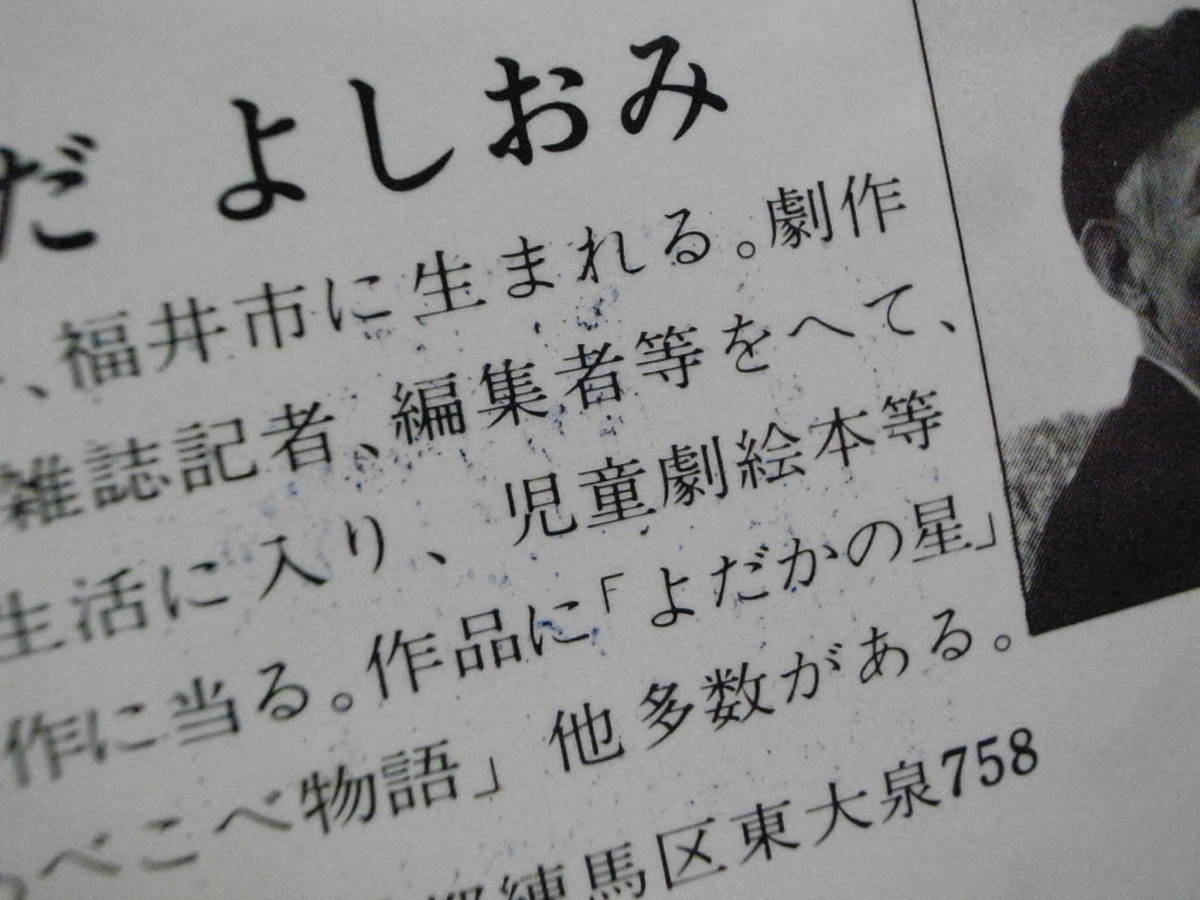 だ よしおみ
、福井市に生まれる。劇作
雑誌記者、編集者等をへて、
生活に入り、児童劇絵本等
作に当る。作品に「よだかの星」
べこべ物語」他多数がある。
練馬区東大泉758